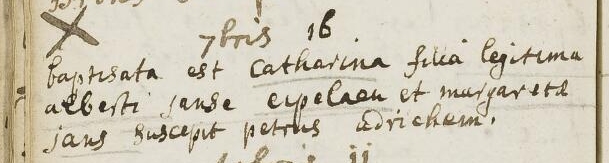 7bris 16
baptisata est Catharina filia legitima
alberti janse eipelaen et margareta
jans suscepit petrus adrichem.